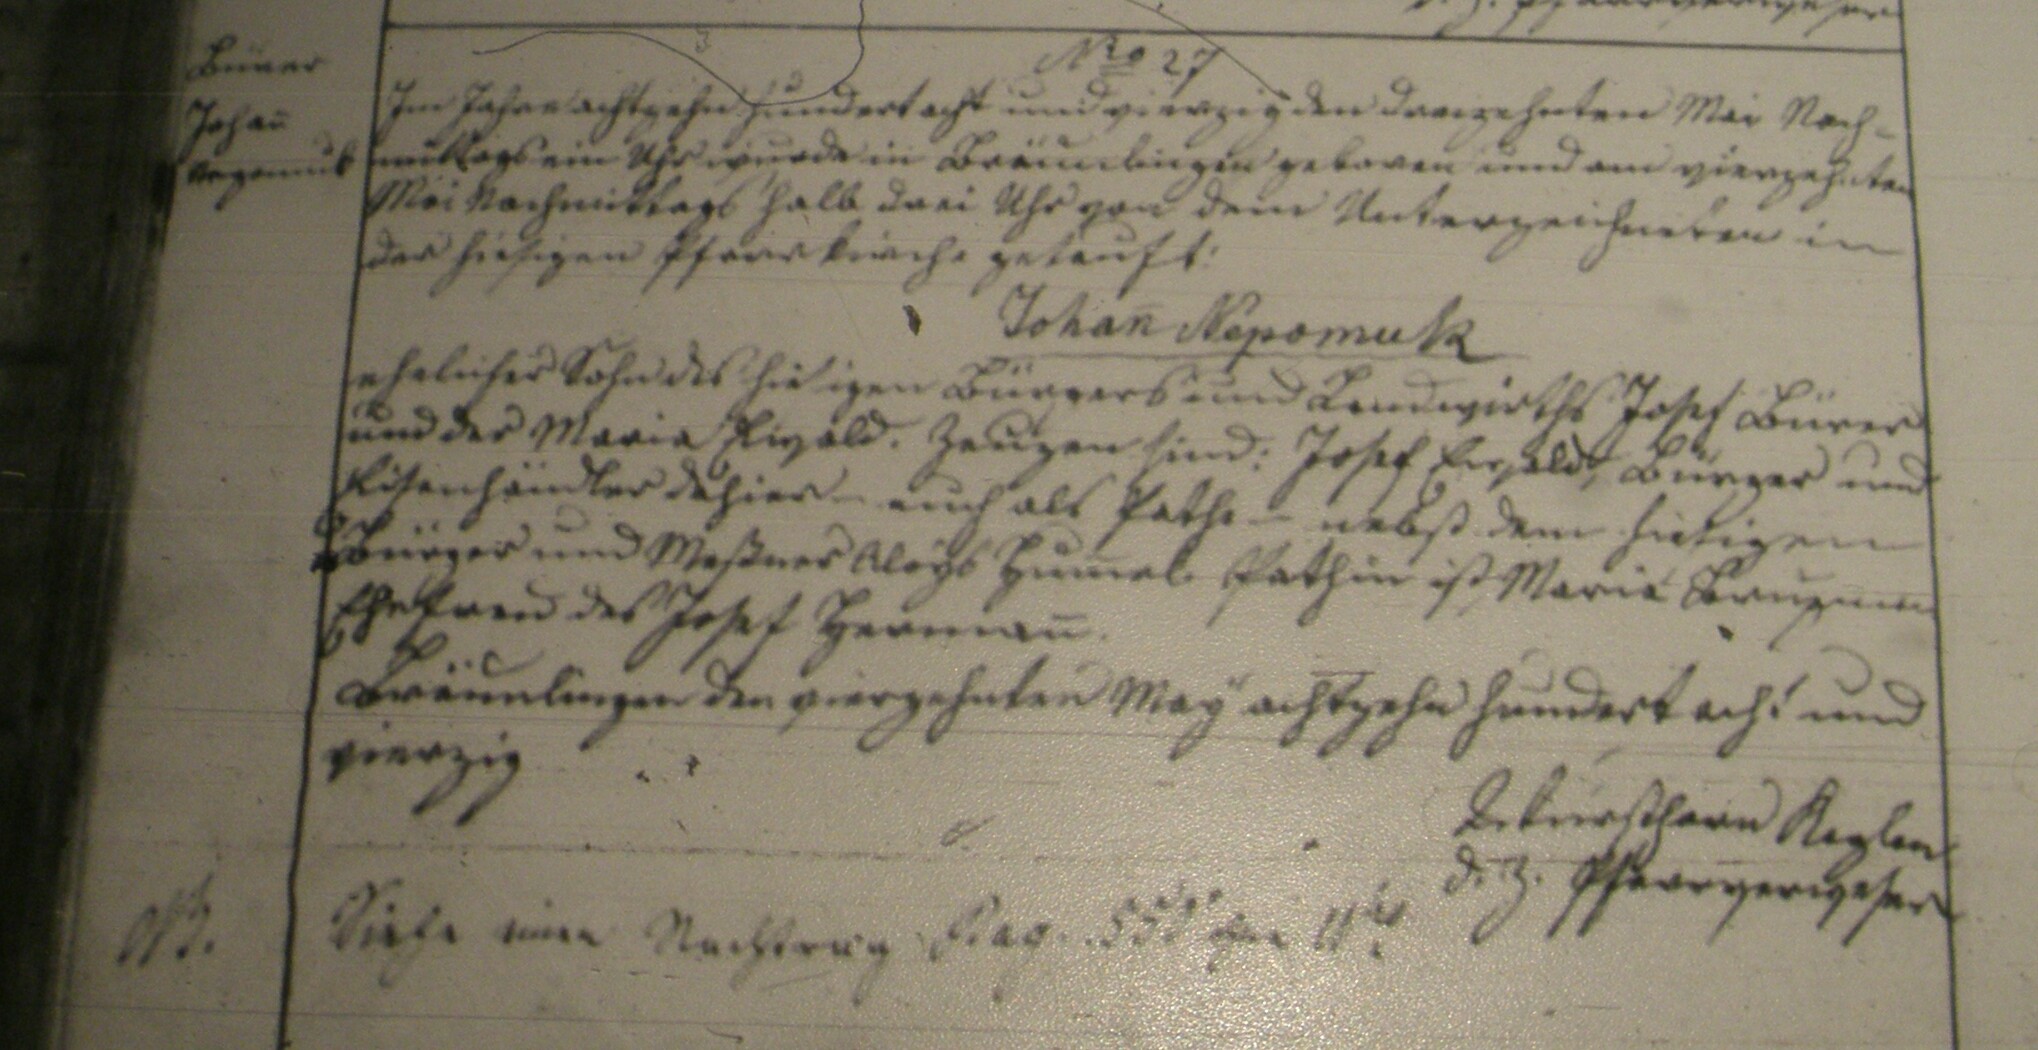 d. Z. Pfarrverweser
Nro 27
Bürer
Johañ
Nepomuk
Im Jahre achtzehn hundert acht und vierzig den dreizehnten Mai Nach-
mittags ein Uhr wurde in Bräunlingen geboren und am vierzehnten
Mai Nachmittags halb drei Uhr von dem Unterzeichneten in
der hiesigen Pfarrkirche getauft:
Johañ Nepomuk
ehelicher Sohn des hiesigen Bürgers und Landwirths Josef Bürer
und der Maria Ewald. Zeugen sind: Josef Ewald, Bürger und
Eisenhändler dahier – auch als Pathe – nebst dem hiesigen
Bürger und Meßner Aloys Hum̄el. Pathin ist Maria
Ehefrau des Josef Hermañ.
Bräunlingen den vierzehnten May achtzehn hundert acht und
vierzig
d. Z. Pfarrverweser
NB. Siehe den Nachtrag Pag. 555